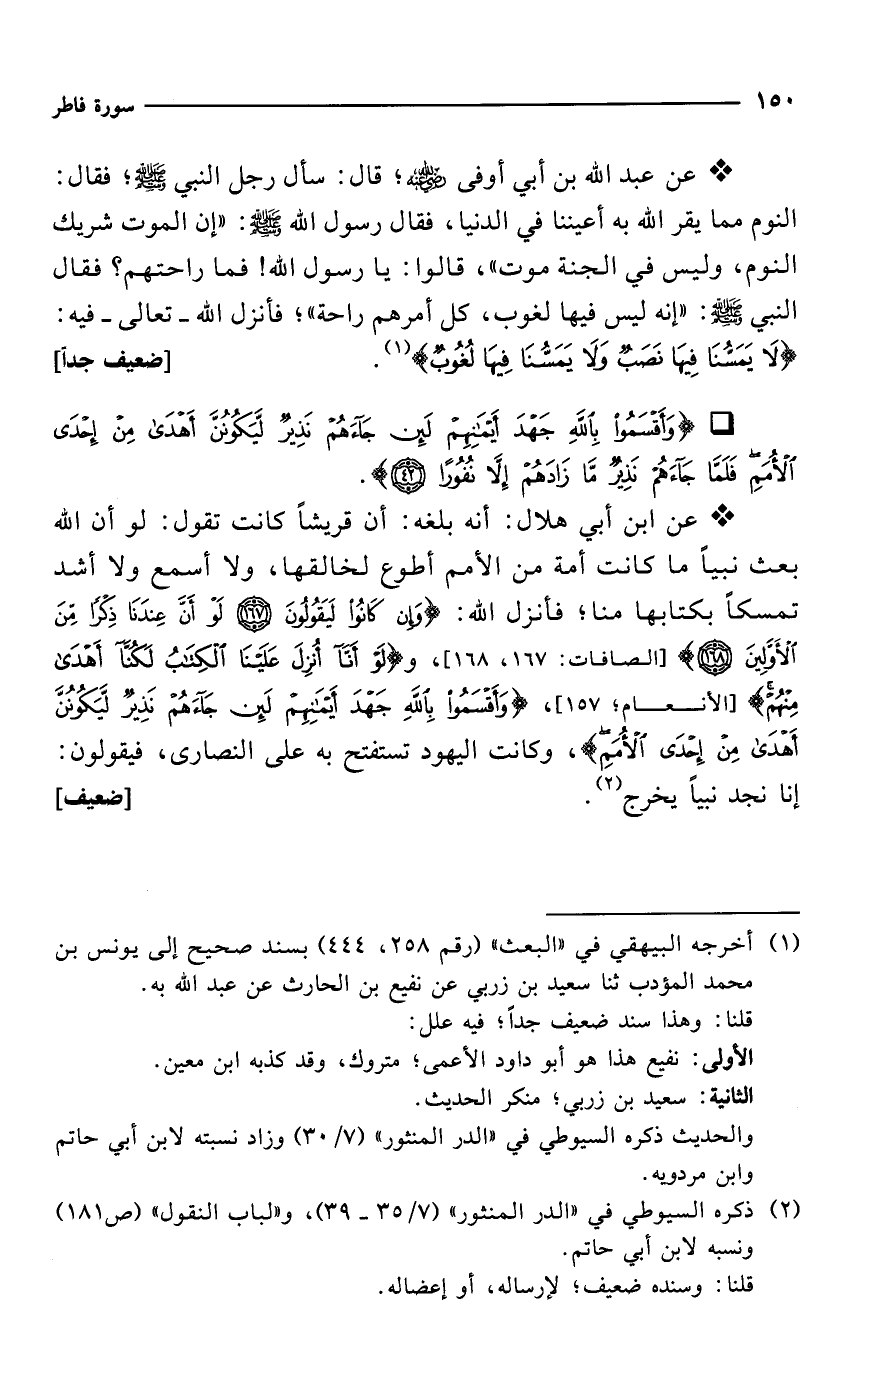 ١٥٠ سورة فاطر
❖ عن عبد الله بن أبي أوفى رضي الله عنه؛ قال: سأل رجل النبي ﷺ؛ فقال:
النوم مما يقر الله به أعيننا في الدنيا، فقال رسول الله ﷺ: «إن الموت شريك
النوم، وليس في الجنة موت»، قالوا: يا رسول الله! فما راحتهم؟ فقال
النبي ﷺ: «إنه ليس فيها لغوب، كل أمرهم راحة»؛ فأنزل الله ـ تعالى ـ فيه:
﴿لَا يَمَسُّنَا فِيهَا نَصَبٌ وَلَا يَمَسُّنَا فِيهَا لُغُوبٌ﴾(١). [ضعيف جداً]
❏ ﴿وَأَقْسَمُوا۟ بِٱللَّهِ جَهْدَ أَيْمَـٰنِهِمْ لَئِن جَآءَهُمْ نَذِيرٌ لَّيَكُونُنَّ أَهْدَىٰ مِنْ إِحْدَى
ٱلْأُمَمِ ۖ فَلَمَّا جَآءَهُمْ نَذِيرٌ مَّا زَادَهُمْ إِلَّا نُفُورًا ٤٢﴾.
❖ عن ابن أبي هلال: أنه بلغه: أن قريشاً كانت تقول: لو أن الله
بعث نبياً ما كانت أمة من الأمم أطوع لخالقها، ولا أسمع ولا أشد
تمسكاً بكتابها منا؛ فأنزل الله: ﴿وَإِن كَانُوا۟ لَيَقُولُونَ ١٦٧ لَوْ أَنَّ عِندَنَا ذِكْرًا مِّنَ
ٱلْأَوَّلِينَ ١٦٨﴾ [الصافات: ١٦٧، ١٦٨]، و﴿لَوْ أَنَّآ أُنزِلَ عَلَيْنَا ٱلْكِتَـٰبُ لَكُنَّآ أَهْدَىٰ
مِنْهُمْ ۚ﴾ [الأنـعـام؛ ١٥٧]، ﴿وَأَقْسَمُوا۟ بِٱللَّهِ جَهْدَ أَيْمَـٰنِهِمْ لَئِن جَآءَهُمْ نَذِيرٌ لَّيَكُونُنَّ
أَهْدَىٰ مِنْ إِحْدَى ٱلْأُمَمِ ۖ﴾، وكانت اليهود تستفتح به على النصارى، فيقولون:
إنا نجد نبياً يخرج(٢). [ضعيف]
(١) أخرجه البيهقي في «البعث» (رقم ٢٥٨، ٤٤٤) بسند صحيح إلى يونس بن
محمد المؤدب ثنا سعيد بن زربي عن نفيع بن الحارث عن عبد الله به.
قلنا: وهذا سند ضعيف جداً؛ فيه علل:
الأولى: نفيع هذا هو أبو داود الأعمى؛ متروك، وقد كذبه ابن معين.
الثانية: سعيد بن زربي؛ منكر الحديث.
والحديث ذكره السيوطي في «الدر المنثور» (٧/ ٣٠) وزاد نسبته لابن أبي حاتم
وابن مردويه.
(٢) ذكره السيوطي في «الدر المنثور» (٧/ ٣٥ ـ ٣٩)، و«لباب النقول» (ص١٨١)
ونسبه لابن أبي حاتم.
قلنا: وسنده ضعيف؛ لإرساله، أو إعضاله.